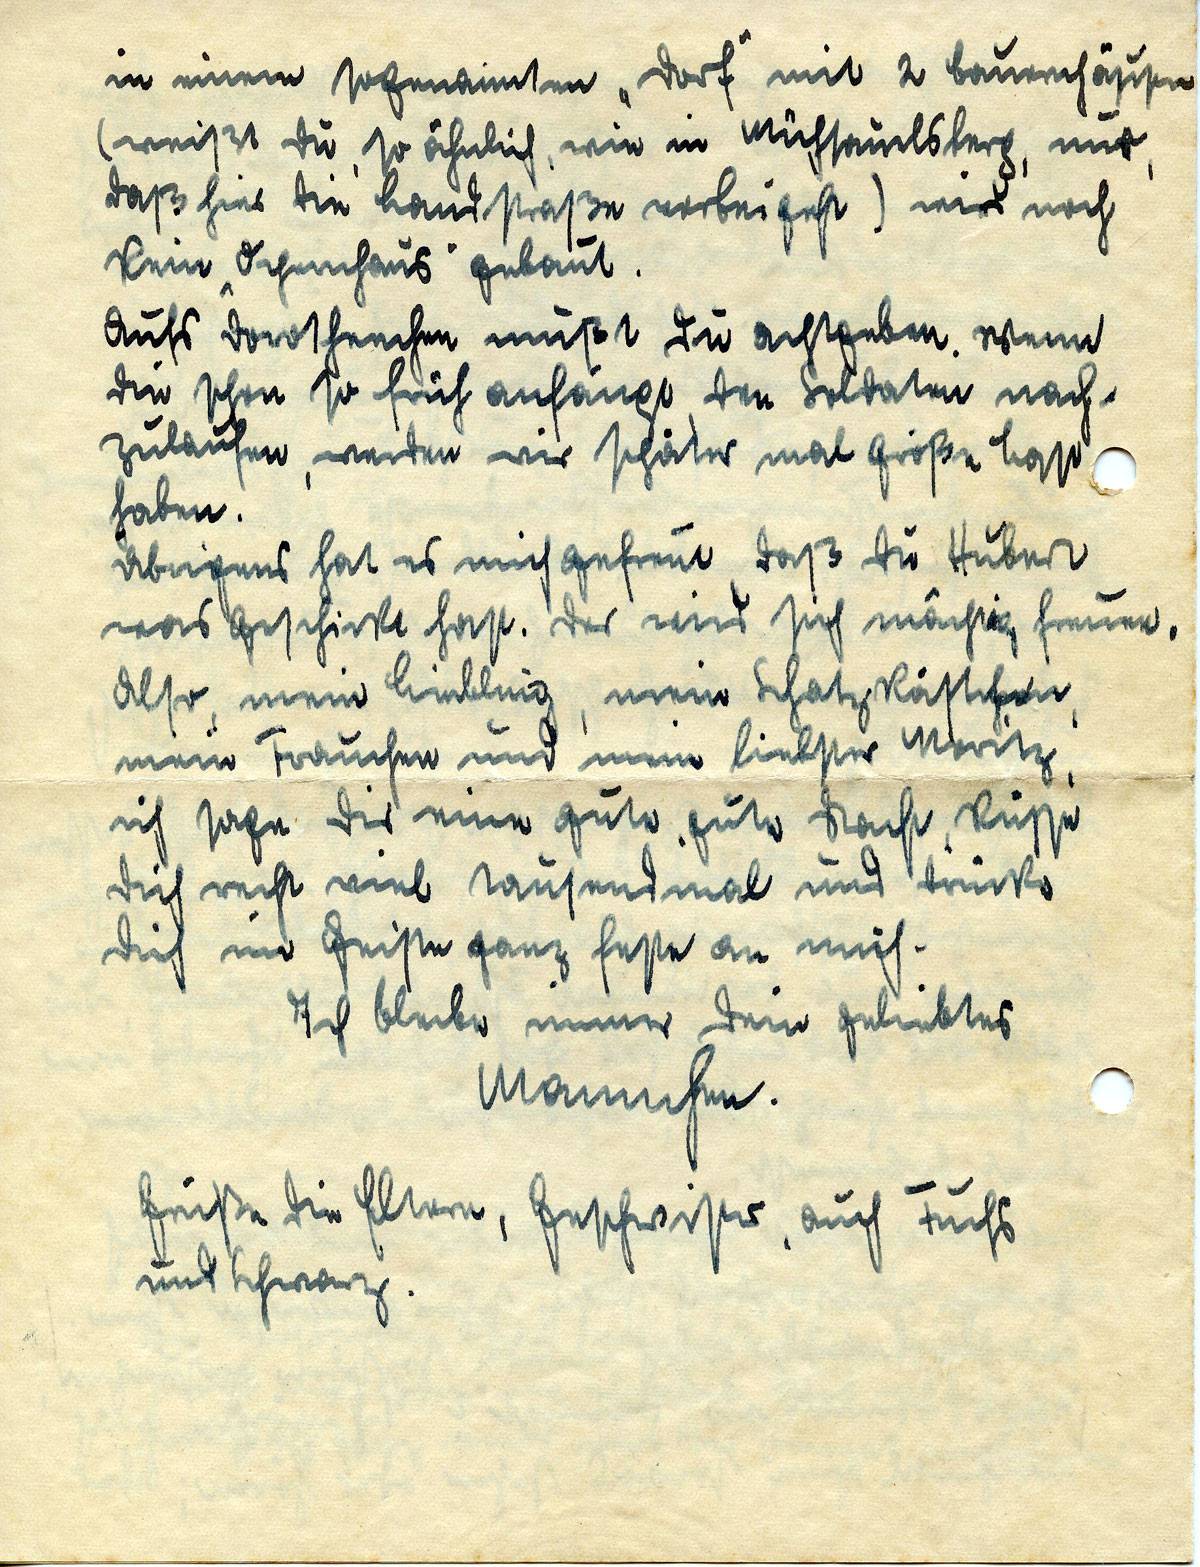 in einem sogenannten „Dorf" mit 2 Bauernhäusern
(weißt Du, so ähnlich, wie in, nur,
daß hier die Landstraße vorbeigeht) wird noch
kein „Opernhaus" gebaut.
Aufs Dorotheechen mußt Du achtgeben. Wenn
die schon so früh anfängt, den Soldaten nach-
zulaufen, werden wir später mal große Last
haben.
Übrigens hat es mich gefreut, daß Du Hubert
was geschickt hast. Der wird sich mächtig freuen.
Also, mein Liebling, mein Schatzkästchen,
mein Frauchen und mein liebster Moritz,
ich sage Dir eine gute, gute Nacht, küsse
Dich recht viel tausendmal und drücke
Dich im Geiste ganz feste an mich.
Ich bleibe immer Dein geliebtes
Mannchen.
Grüße die Eltern, Geschwister, auch Fuchs
und Schwarz.